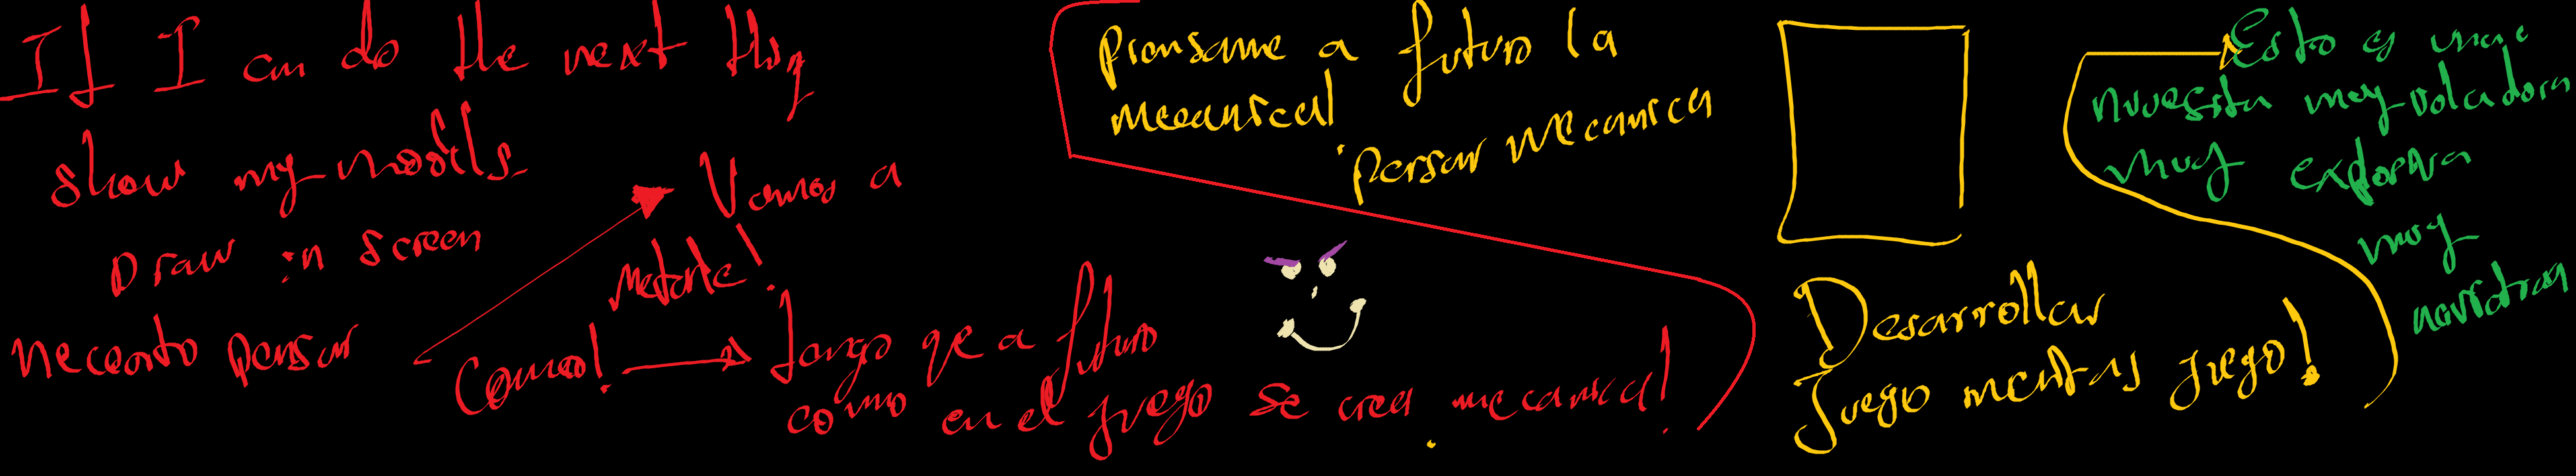 If I can do the next thig
show my models
Draw in screen
Necesito pensar
Vamos a
meterle!
Como!
Tengo qe a futuro
como en el juego se crea mecanica!
Piensame a futuro la
mecanical
pensar mecanica
Desarrollar
Juego mientras juego!
Esto es una
muy voladora
muy
muy